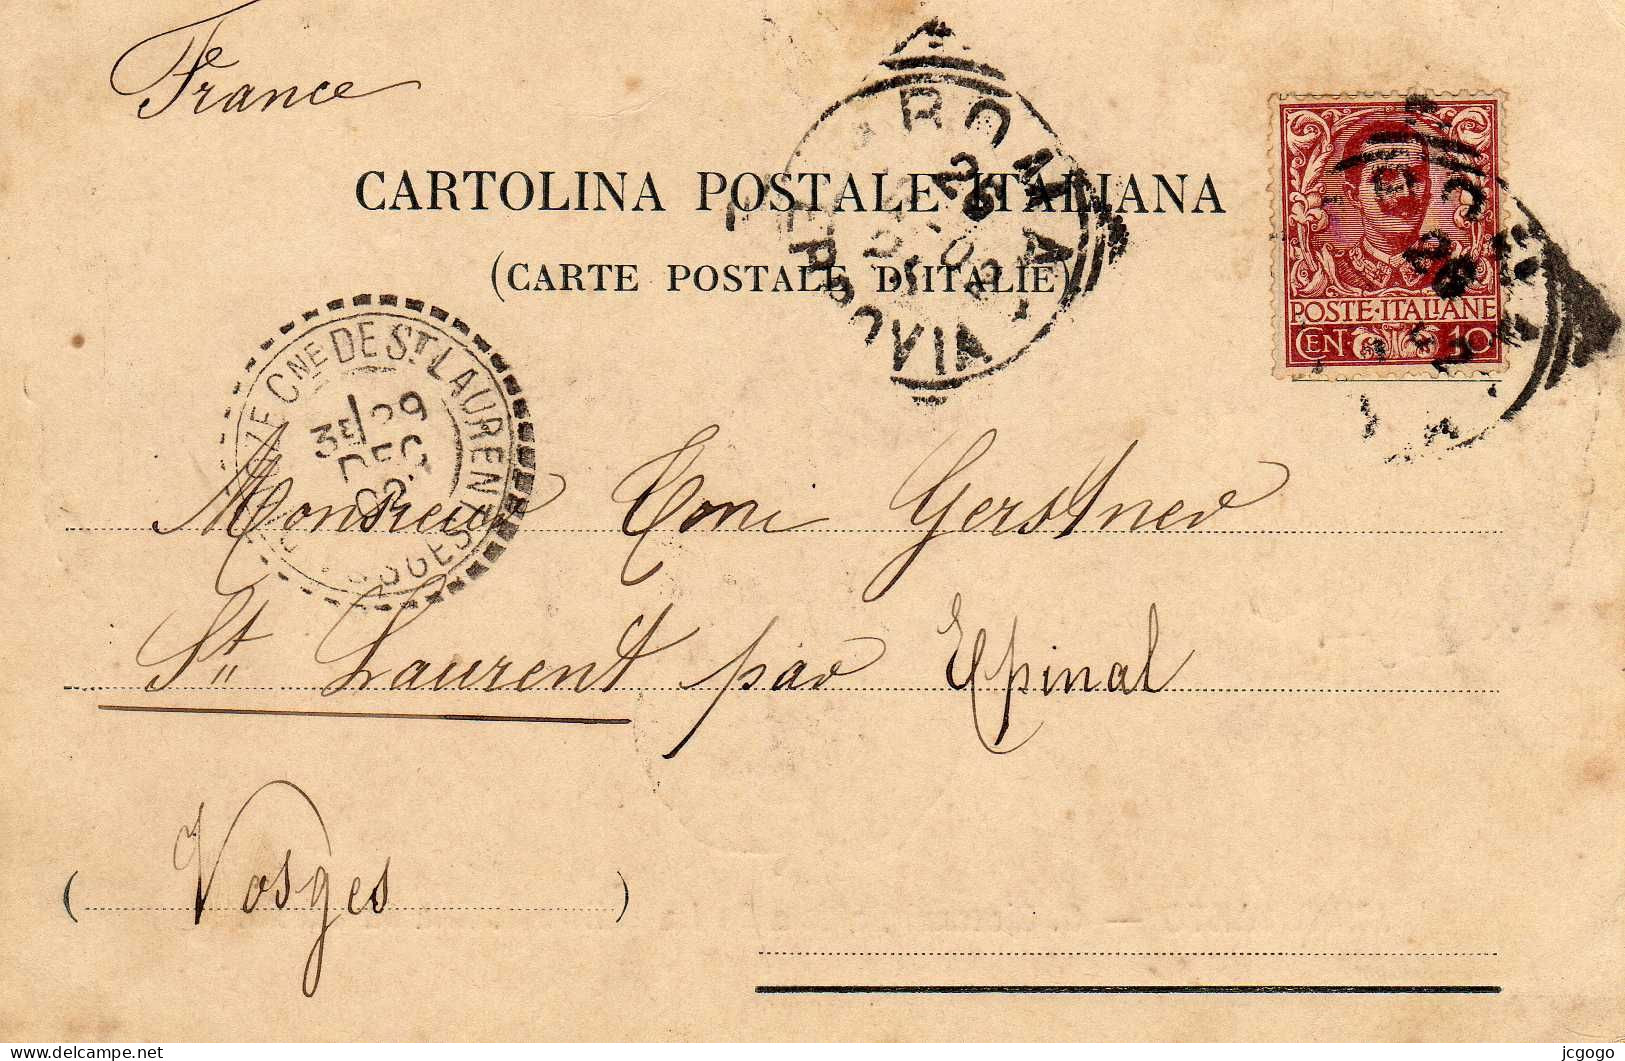 France
CARTOLINA POSTALE ITALIANA
(CARTE POSTALE D'ITALIE)
ROMA
26
VIA
POSTE·ITALIANE
CEN· 10
26
CNE DE ST LAURENT
3E 29
DEC
02
VOSGES
Monsieur Toni Gerstner
St. Laurent par Epinal
( Vosges )
jcgogo